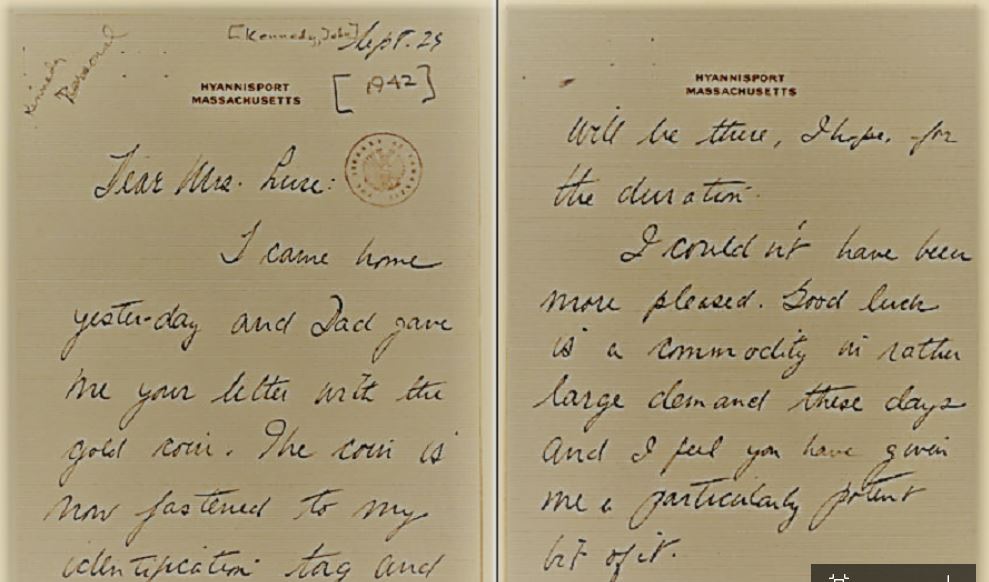 Kennedy
Personal
[Kennedy, John]
Sept. 29
HYANNISPORT
MASSACHUSETTS
[1942]
Dear Mrs. Luce:
I came home
yester-day and Dad gave
me your letter with the
gold coin. The coin is
now fastened to my
identification tag and
HYANNISPORT
MASSACHUSETTS
will be there, I hope, for
the duration.
I couldn't have been
more pleased. Good luck
is a commodity in rather
large demand these days
and I feel you have given
me a particularly potent
bit of it.